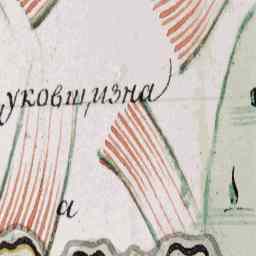 уковщизна)
а